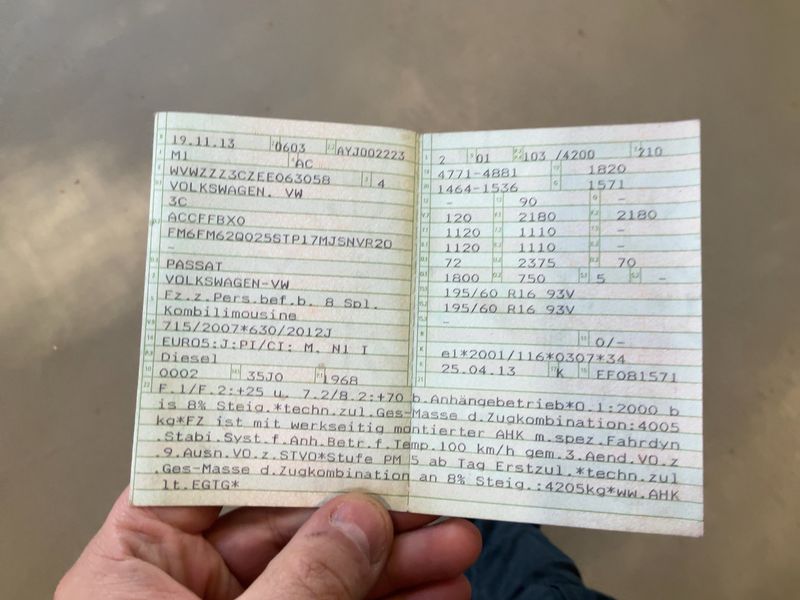 19.11.13 0603 AYJ002223
M1 AC
WVWZZZ3CZEE063058 4
VOLKSWAGEN, VW
3C
ACCFFBX0
FM6FM62Q025STP17MJSNVR20
-
PASSAT
VOLKSWAGEN-VW
Fz.z.Pers.bef.b. 8 Spl.
Kombilimousine
715/2007*630/2012J
EURO5;J;PI/CI; M, N1 I
Diesel
0002 35J0 1968
2 01 103 /4200 210
4771-4881 1820
1464-1536 1571
- 90 -
120 2180 2180
1120 1110 -
1120 1110 -
72 2375 70
1800 750 5 -
195/60 R16 93V
195/60 R16 93V
-
0/-
e1*2001/116*0307*34
25.04.13 K EF081571
F.1/F.2:+25 u. 7.2/8.2:+70 b.Anhängebetrieb*O.1:2000 b
is 8% Steig.*techn.zul.Ges-Masse d.Zugkombination:4005
kg*FZ ist mit werkseitig montierter AHK m.spez.Fahrdyn
.Stabi.Syst.f.Anh.Betr.f.Temp.100 km/h gem.3.Aend.VO.z
.9.Ausn.VO.z.STVO*Stufe PM 5 ab Tag Erstzul.*techn.zul
.Ges-Masse d.Zugkombination an 8% Steig.:4205kg*ww.AHK
lt.EGTG*